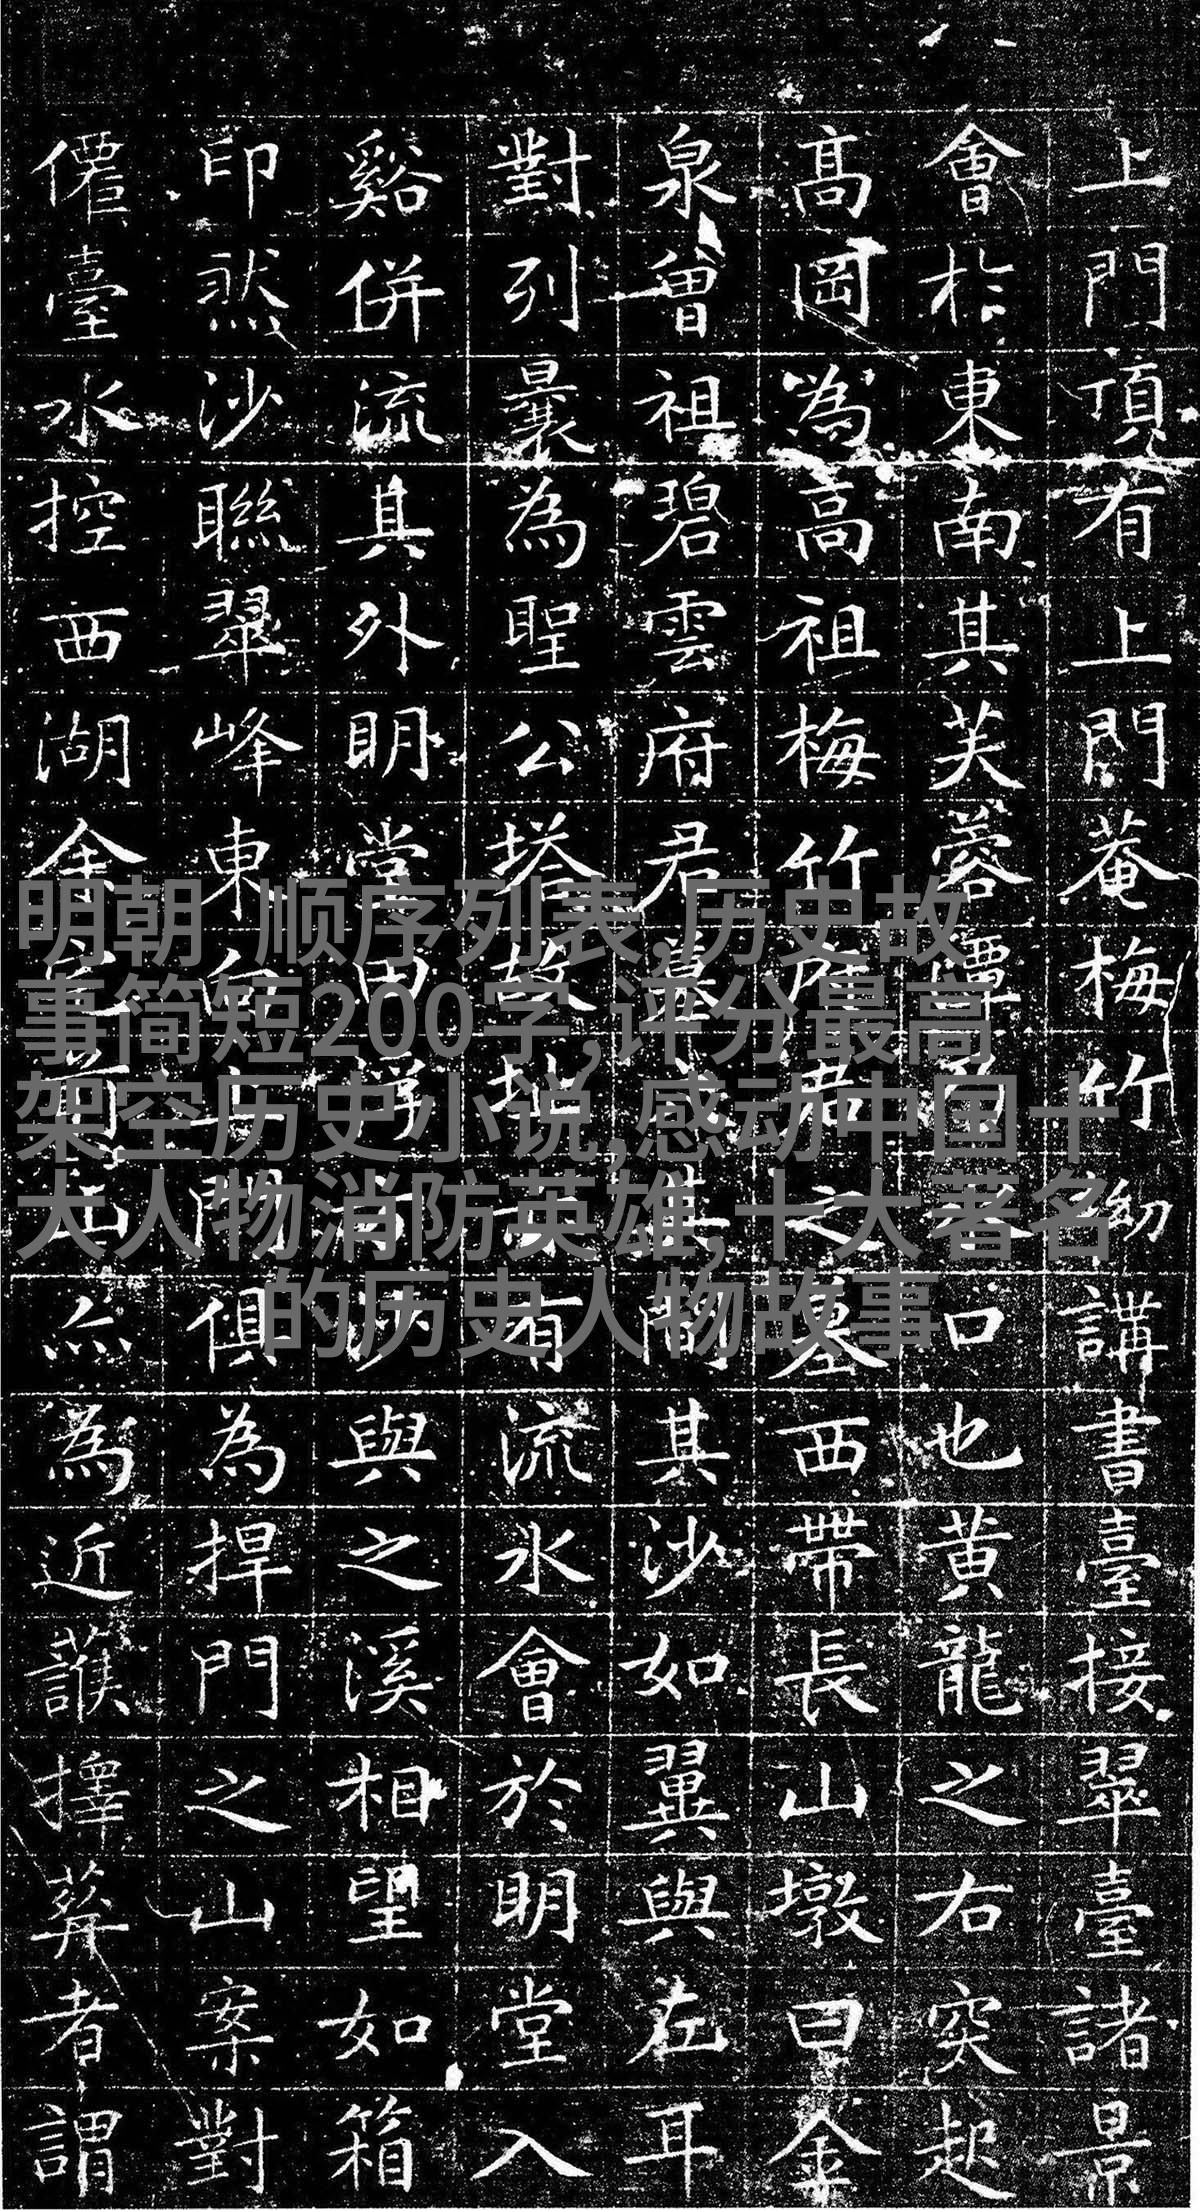 上門頂有上門菴梅竹幼講書臺接翠臺諸景
會於東南其芙蓉譚口也黃龍之右突起
高岡為高祖梅竹府君之墓西帶長山墩曰金
泉曾祖碧雲府君墓其間其沙如翼與左耳
對列曩為聖公塔故地有流水會於明堂入
谿併流其外明堂田沙與之溪相望如箱
印然沙聯翠峰東向間俱為捍門之山案對
僊臺水控西湖余為近擇葬者謂
明朝 顺序列表,历史故
事简短200字,评分最高
架空历史小说,感动中国十
大人物消防英雄,十大著名
的历史人物故事